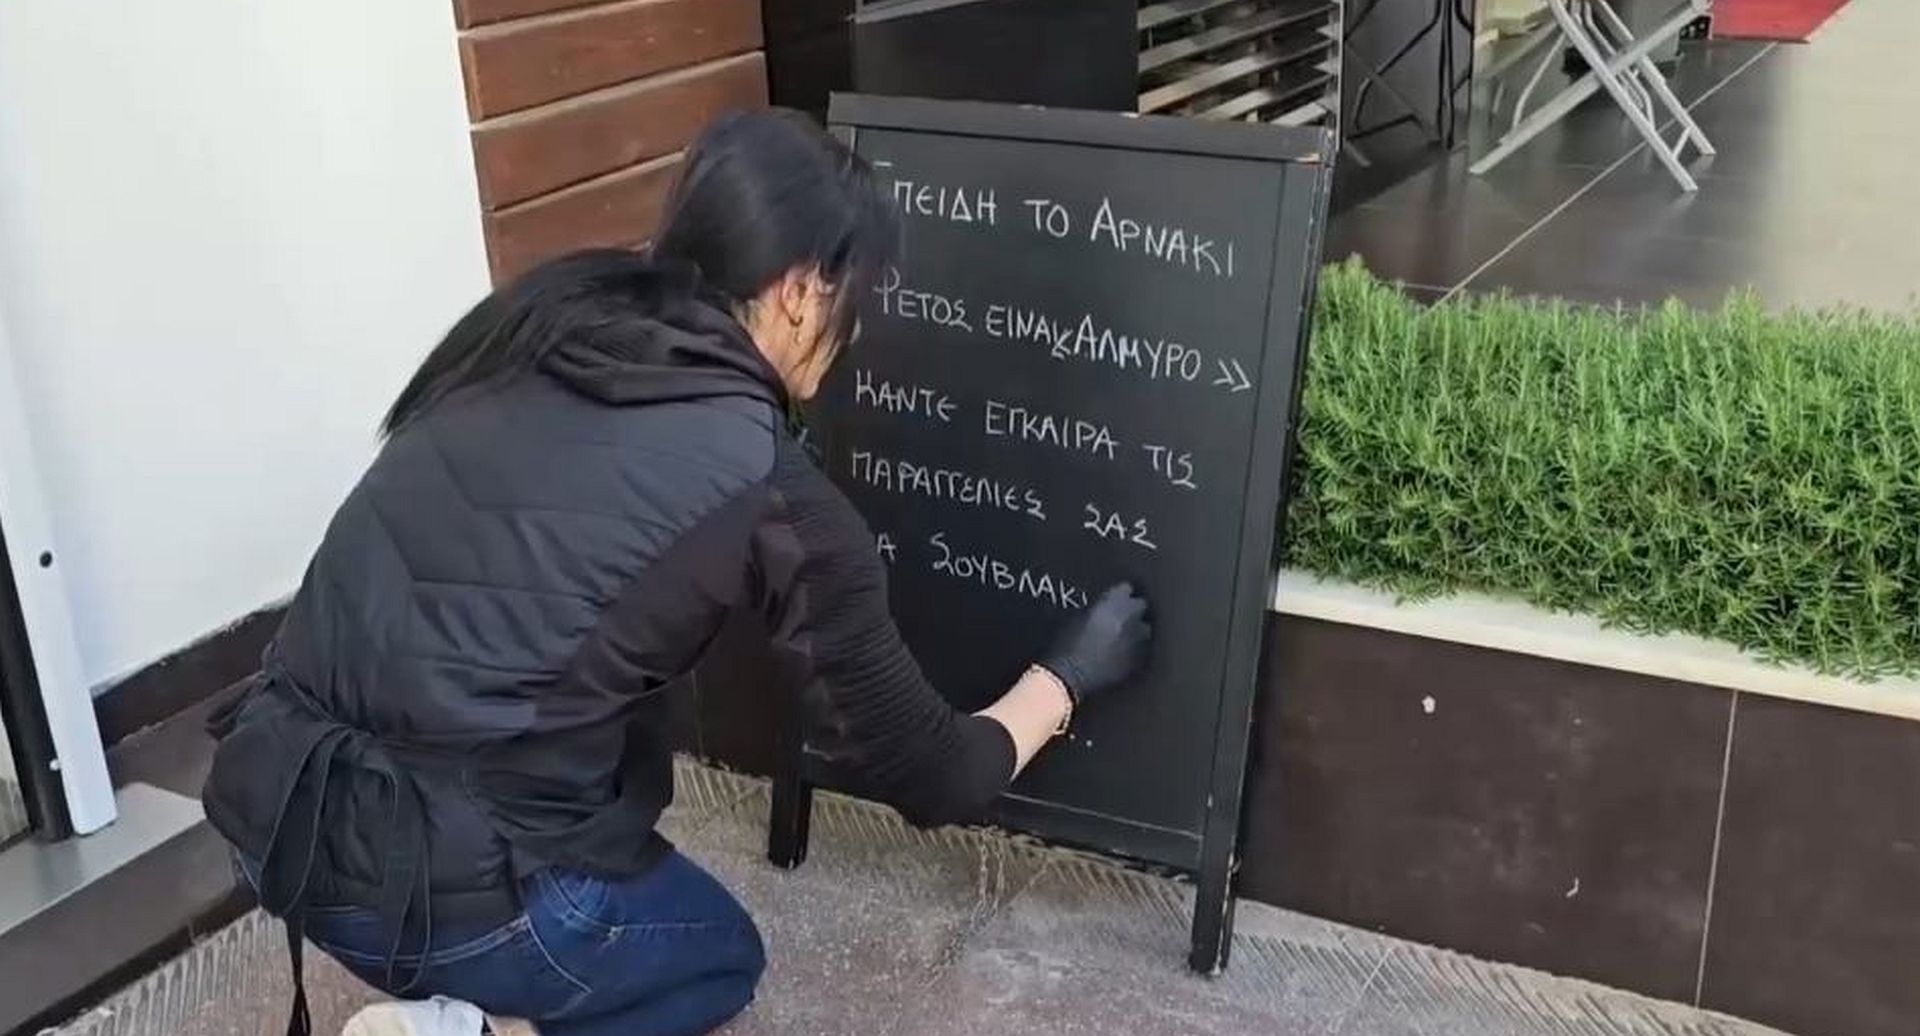 Επειδη το Αρνακι
Φετος ειναι «Αλμυρο»
Καντε εγκαιρα τις
παραγγελιες σας
Σουβλακι